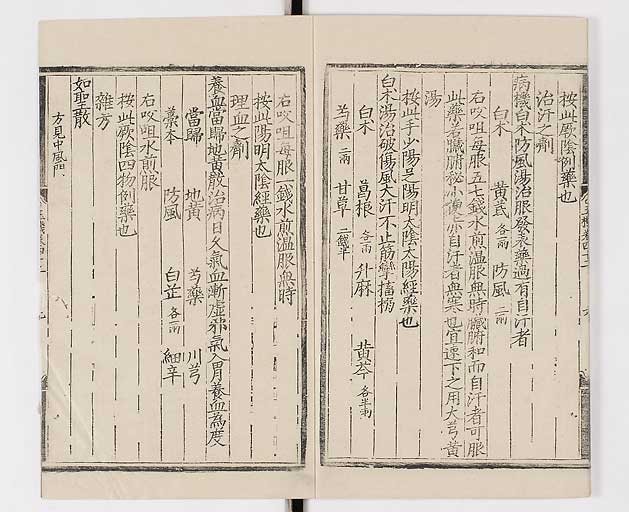 按此厥陰例藥也
治汗之劑
病機白朮防風湯治服發表藥過有自汗者
白朮 黄芪各一兩 防風二兩
右㕮咀每服五七錢水煎温服無時臟腑和而自汗者可服
此藥若臟腑秘小便赤自汗者無寒也宜速下之用大芎黄
湯
按此手少陽足陽明太陰太陽經藥也
白朮湯治破傷風大汗不止筋攣搐搦
白朮 葛根各一兩 升麻 黄芩各半兩
芍藥二兩 甘草二錢半
右㕮咀每服一錢水煎温服無時
按此陽明太陰經藥也
理血之劑
養血當歸地黄散治病日久氣血漸虚邪氣入胃養血為度
當歸 地黄 芍藥 川芎
藁本 防風 白芷各一兩 細辛
右㕮咀水煎服
按此厥陰四物例藥也
雜方
如聖散
方見中風門